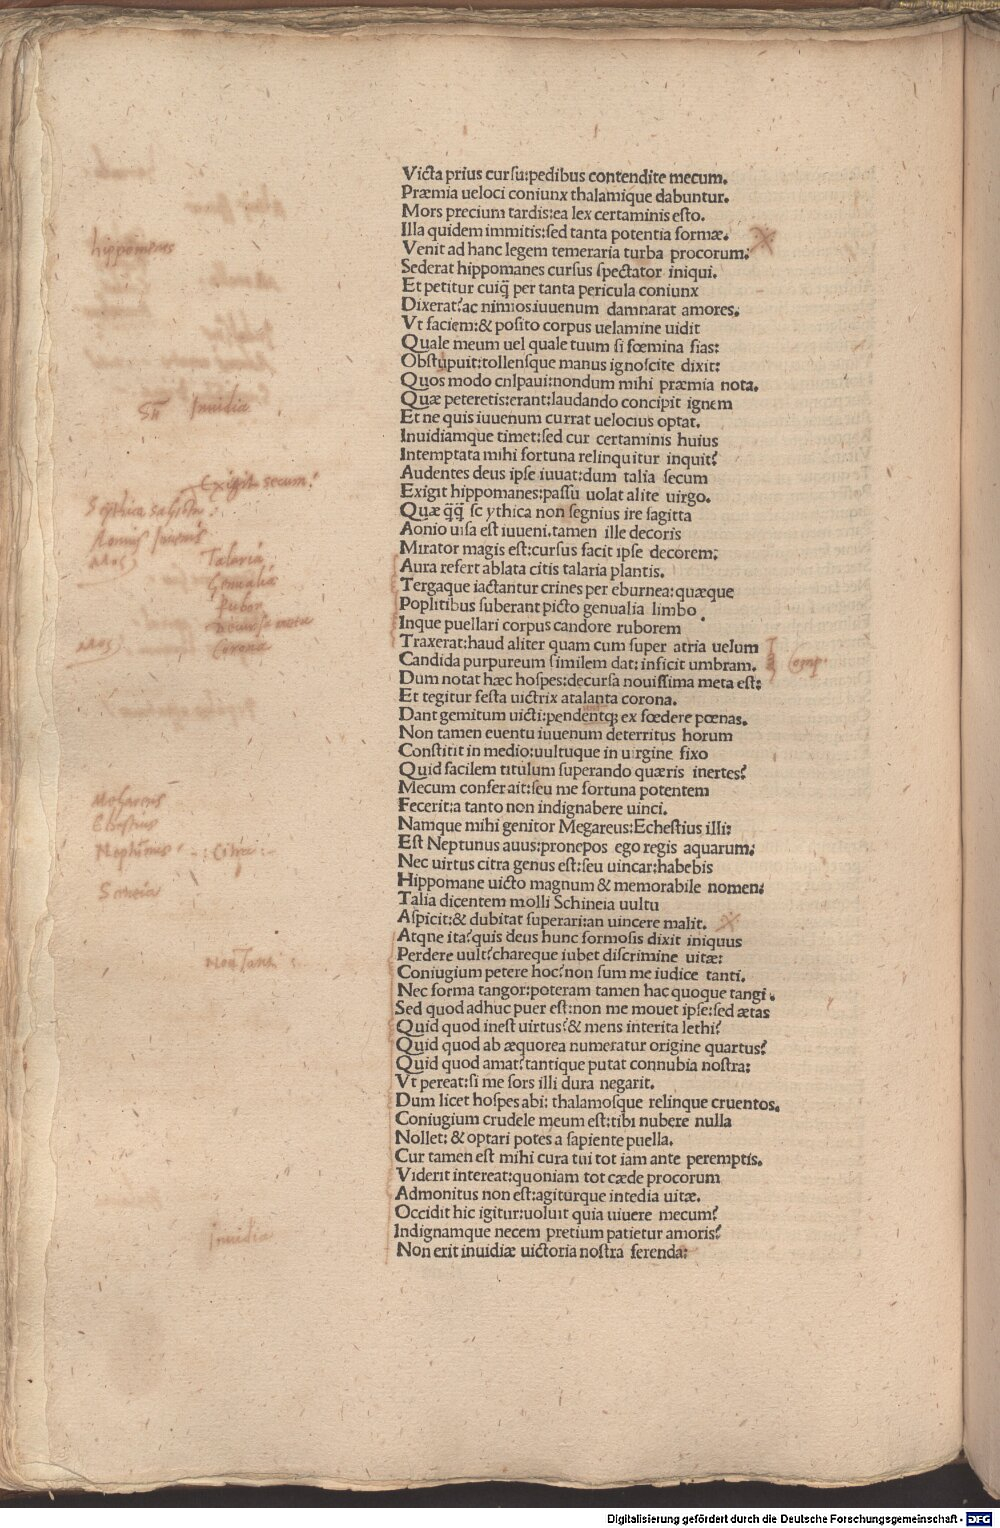 Victa prius cursu:pedibus contendite mecum.
Præmia ueloci coniunx thalamique dabuntur.
Mors precium tardis:ea lex certaminis esto.
Illa quidem immitis:sed tanta potentia formæ.
hippomenes
Venit ad hanc legem temeraria turba procorum.
Sederat hippomanes cursus spectator iniqui.
Et petitur cuiq̃ per tanta pericula coniunx
Dixerat?ac nimios iuuenum damnarat amores.
Vt faciem:& posito corpus uelamine uidit
Quale meum uel quale tuum si fœmina fias:
Obstupuit:tollensque manus ignoscite dixit:
Quos modo cnlpaui:nondum mihi præmia nota.
Quæ peteretis:erant:laudando concipit ignem
Inuidia
Et ne quis iuuenum currat uelocius optat.
Inuidiamque timet:sed cur certaminis huius
Intemptata mihi fortuna relinquitur inquit?
Audentes deus ipse iuuat:dum talia secum
Exigit secum:
Exigit hippomanes:passu uolat alite uirgo.
Scythica sagitta:
Quæ q̃q̃ sc ythica non segnius ire sagitta
Aonio uisa est iuueni.tamen ille decoris
Mirator magis est:cursus facit ipse decorem:
Talaria
Aura refert ablata citis talaria plantis.
Genualia
Tergaque iactantur crines per eburnea:quæque
Rubor
Poplitibus suberant picto genualia limbo
Inque puellari corpus candore ruborem
Corona
Traxerat:haud aliter quam cum super atria uelum
Candida purpureum similem dat: inficit umbram.
Comp.
Dum notat hæc hospes:decursa nouissima meta est:
Et tegitur festa uictrix atalanta corona.
Dant gemitum uicti:pendentq; ex fœdere pœnas.
Non tamen euentu iuuenum deterritus horum
Constitit in medio:uultuque in uirgine fixo
Quid facilem titulum superando quæris inertes?
Mecum confer ait:seu me fortuna potentem
Megareus
Fecerit:a tanto non indignabere uinci.
Namque mihi genitor Megareus:Echestius illi:
Neptunus
Citra:
Est Neptunus auus:pronepos ego regis aquarum:
Nec uirtus citra genus est:seu uincar:habebis
Hippomane uicto magnum & memorabile nomen:
Talia dicentem molli Schineia uultu
Aspicit:& dubitat superari:an uincere malit.
Atqne ita?quis deus hunc formosis dixit iniquus
Perdere uult?chareque iubet discrimine uitæ:
Coniugium petere hoc?non sum me iudice tanti.
Nec forma tangor:poteram tamen hac quoque tangi.
Sed quod adhuc puer est:non me mouet ipse:sed ætas
Quid quod inest uirtus?& mens interita lethi?
Quid quod ab æquorea numeratur origine quartus?
Quid quod amat?tantique putat connubia nostra:
Vt pereat:si me sors illi dura negarit.
Dum licet hospes abi: thalamosque relinque cruentos.
Coniugium crudele meum est:tibi nubere nulla
Nollet: & optari potes a sapiente puella.
Cur tamen est mihi cura tui tot iam ante peremptis.
Viderit intereat:quoniam tot cæde procorum
Admonitus non est:agiturque intedia uitæ.
Occidit hic igitur:uoluit quia uiuere mecum?
Inuidia
Indignamque necem pretium patietur amoris?
Non erit inuidiæ uictoria nostra ferenda:
Digitalisierung gefördert durch die Deutsche Forschungsgemeinschaft - DFG